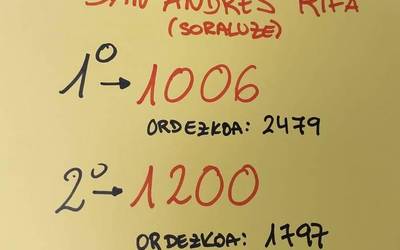 SAN ANDRES RIFA
(SORALUZE)
1º → 1006
ORDEZKOA: 2479
2º → 1200
ORDEZKOA: 1797